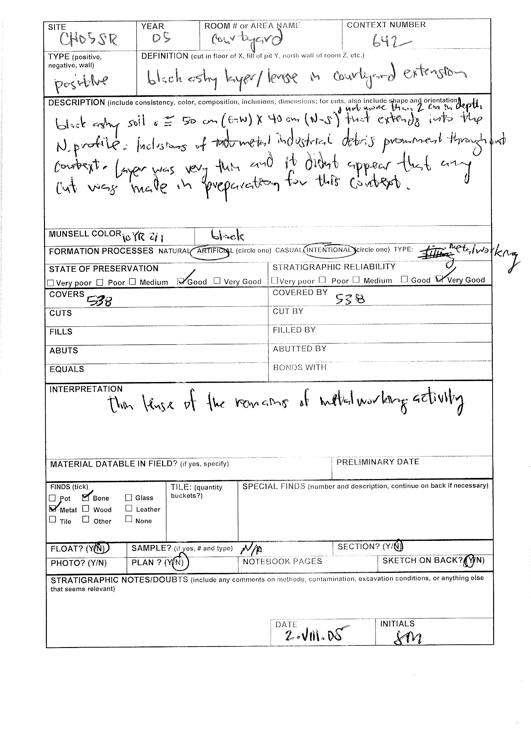 SITE YEAR ROOM # or AREA NAME CONTEXT NUMBER
CHO5SR 05 courtyard 642
TYPE (positive, negative, wall) DEFINITION (cut in floor of X, fill of pit Y, north wall of room Z, etc.)
positive black ashy layer/lense in courtyard extension
DESCRIPTION (include consistency, color, composition, inclusions, dimensions; for cuts, also include shape and orientation)
not more than 2 cm in depth,
black ashy soil. ≅ 50 cm (E-W) x 40 cm (N-S) that extends into the
N. profile. Inclusions of metal industrial debris prominent throughout
context. Layer was very thin and it didnt appear that any
cut was made in preparation for this context.
MUNSELL COLOR 10 YR 2/1 black
FORMATION PROCESSES NATURAL ARTIFICIAL (circle one) CASUAL INTENTIONAL (circle one) TYPE: metalworking
STATE OF PRESERVATION STRATIGRAPHIC RELIABILITY
Very poor Poor Medium Good Very Good Very poor Poor Medium Good Very Good
COVERS 538 COVERED BY 538
CUTS CUT BY
FILLS FILLED BY
ABUTS ABUTTED BY
EQUALS BONDS WITH
INTERPRETATION
thin lense of the remains of metalworking activity
MATERIAL DATABLE IN FIELD? (if yes, specify) PRELIMINARY DATE
FINDS (tick) TILE: (quantity buckets?) SPECIAL FINDS (number and description, continue on back if necessary)
Pot Bone Glass
Metal Wood Leather
Tile Other None
FLOAT? (Y/N) SAMPLE? (if yes, # and type) N/A SECTION? (Y/N)
PHOTO? (Y/N) PLAN ? (Y/N) NOTEBOOK PAGES SKETCH ON BACK? (Y/N)
STRATIGRAPHIC NOTES/DOUBTS (include any comments on methods, contamination, excavation conditions, or anything else
that seems relevant)
DATE INITIALS
2.VIII.05 SM